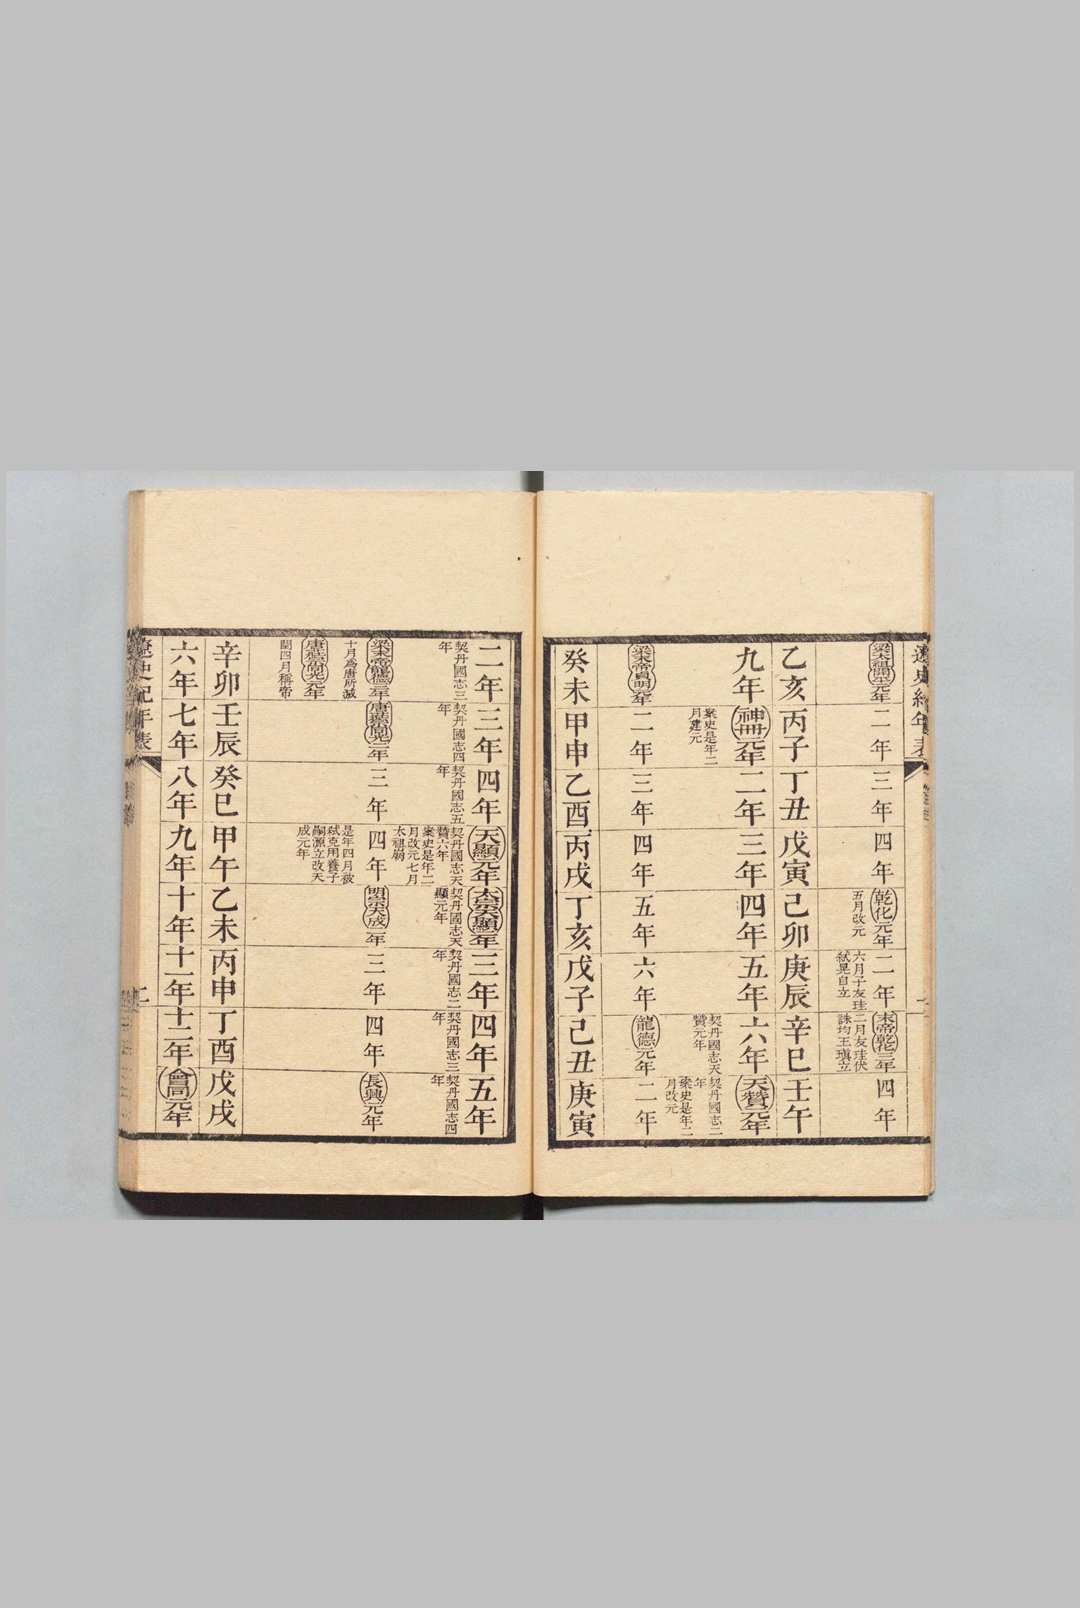 遼史紀年表
梁太祖開平元年
二年
三年
四年
乾化元年
五月改元
二年
六月子友珪
弒晃自立
末帝乾化三年
二月友珪伏
誅均王瑱立
四年
乙亥
丙子
丁丑
戊寅
己卯
庚辰
辛巳
壬午
九年
神冊元年
案史是年二
月建元
二年
三年
四年
五年
六年
契丹國志天
贊元年
天贊元年
契丹國志二
年
案史是年二
月改元
梁末帝貞明元年
二年
三年
四年
五年
六年
龍德元年
二年
癸未
甲申
乙酉
丙戌
丁亥
戊子
己丑
庚寅
二年
契丹國志三
年
三年
契丹國志四
年
四年
契丹國志五
年
天顯元年
契丹國志天
贊六年
案史是年二
月改元七月
太祖崩
太宗天顯二年
契丹國志天
顯元年
三年
契丹國志二
年
四年
契丹國志三
年
五年
契丹國志四
年
梁末帝龍德三年
十月為唐所滅
唐莊宗同光元年
閏四月稱帝
唐莊宗同光二年
三年
四年
是年四月被
弒克用養子
嗣源立改天
成元年
明宗天成二年
三年
四年
長興元年
辛卯
壬辰
癸巳
甲午
乙未
丙申
丁酉
戊戌
六年
七年
八年
九年
十年
十一年
十二年
會同元年
遼史紀年表
二